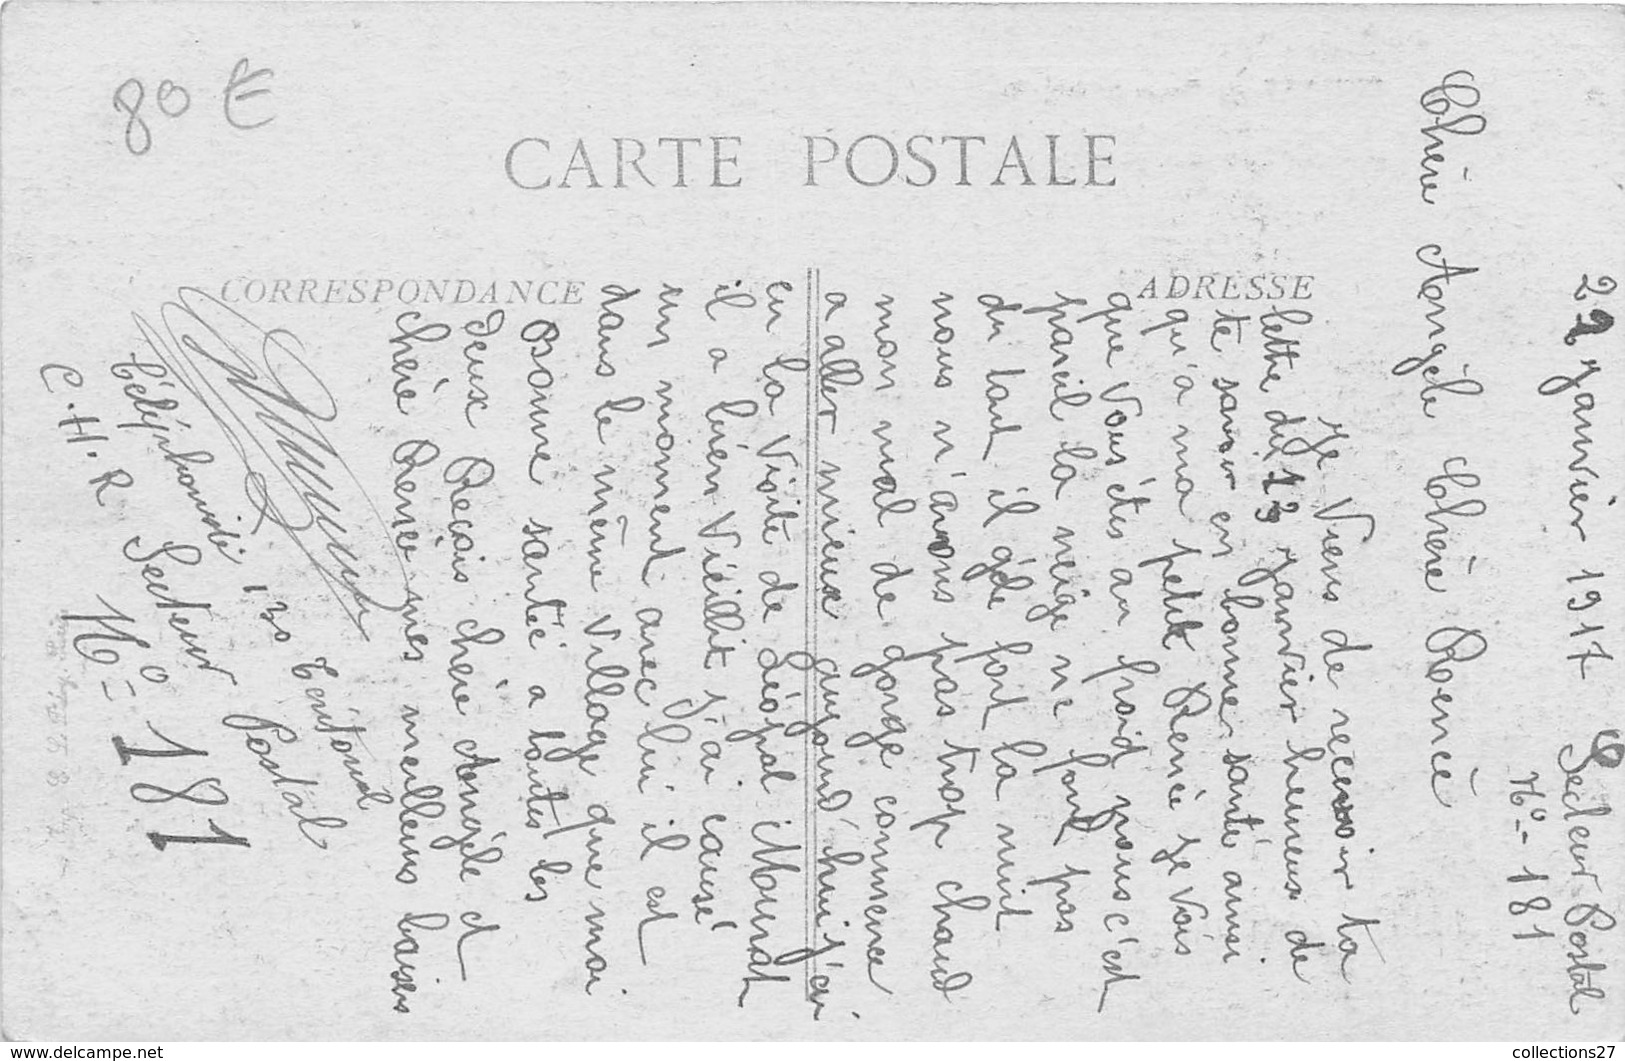 80 €
CARTE POSTALE
CORRESPONDANCE
ADRESSE
22 Janvier 1917 Secteur Postal
N° - 181
Chère Angèle Chère Renée
Je Viens de recevoir ta
lette du 13 Janvier heureux de
te savoir en bonne santé ainsi
qu'a ma petite Renée je Vois
que Vous êtes au froid nous c'est
pareil la neige ne fond pas
du tout il gèle fort la nuit
nous n'avons pas trop chaud
mon mal de gorge commence
a aller mieux aujourd'hui j'ai
eu la Visite de Léopol Mourat
il a bien Viéillit j'ai causé
un moment avec lui il est
dans le même Village que moi
Bonne santée a toutes les
deux Reçois chère Angèle et
chère Renée mes meilleurs baisers
téléphoniste 130 térritorial
C.H.R Secteur Postal
N° - 181
www.delcampe.net
collections27